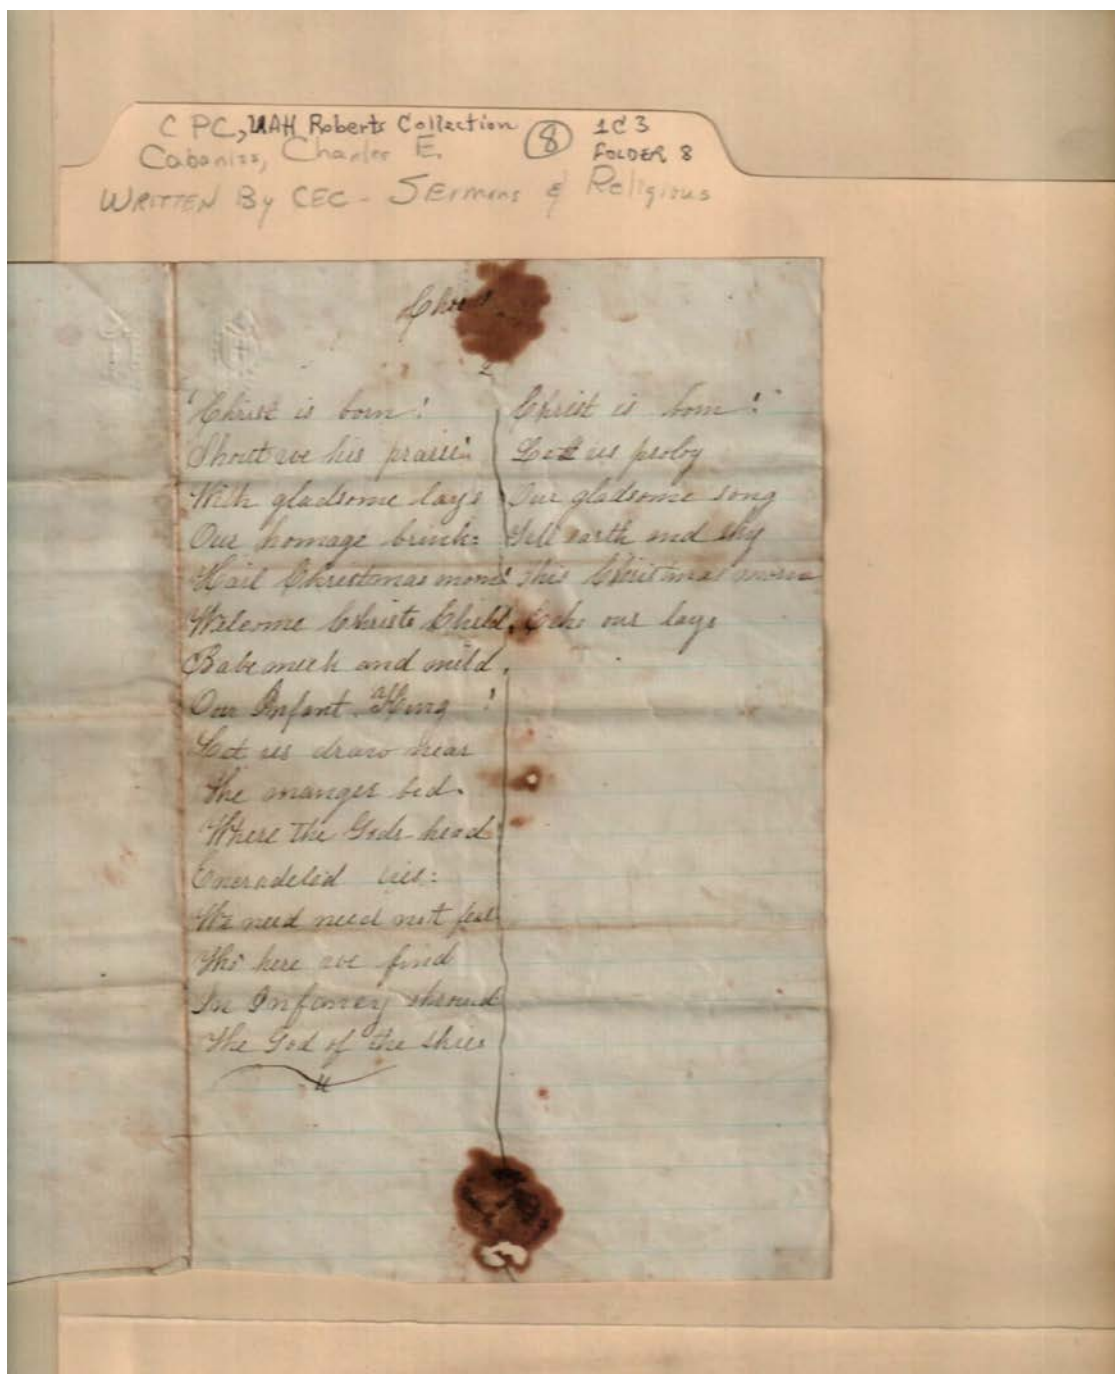 C PC, UAH Roberts Collection 8 1C3
Cabaniss, Charles E. FOLDER 8
WRITTEN By CEC - Sermons & Religious
2
Christ is born!
Shout we his praise!
With gladsome lays
Our homage
Hail Christmas morn!
Welcome Christs Child,
Babe meek and mild,
Our Infant King!
Let us draw near
The manger bed.
Where the Gods-head
lies:
We need need not
Tho' here we find
In Infancy shroud
The God of the skies
Christ is born!
Let us
Our gladsome song
Tell earth and sky
This Christmas morn
Echo our lays